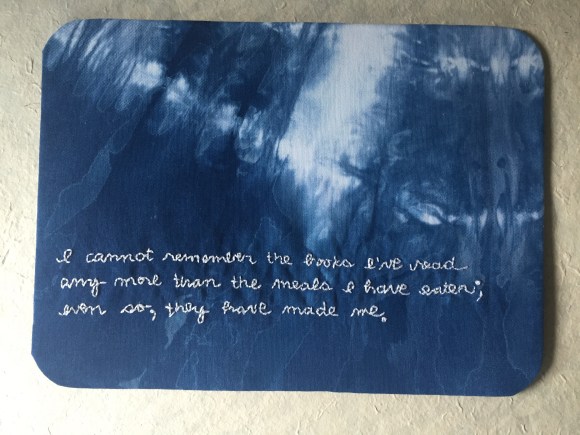 I cannot remember the books I've read
any more than the meals I have eaten;
even so, they have made me.